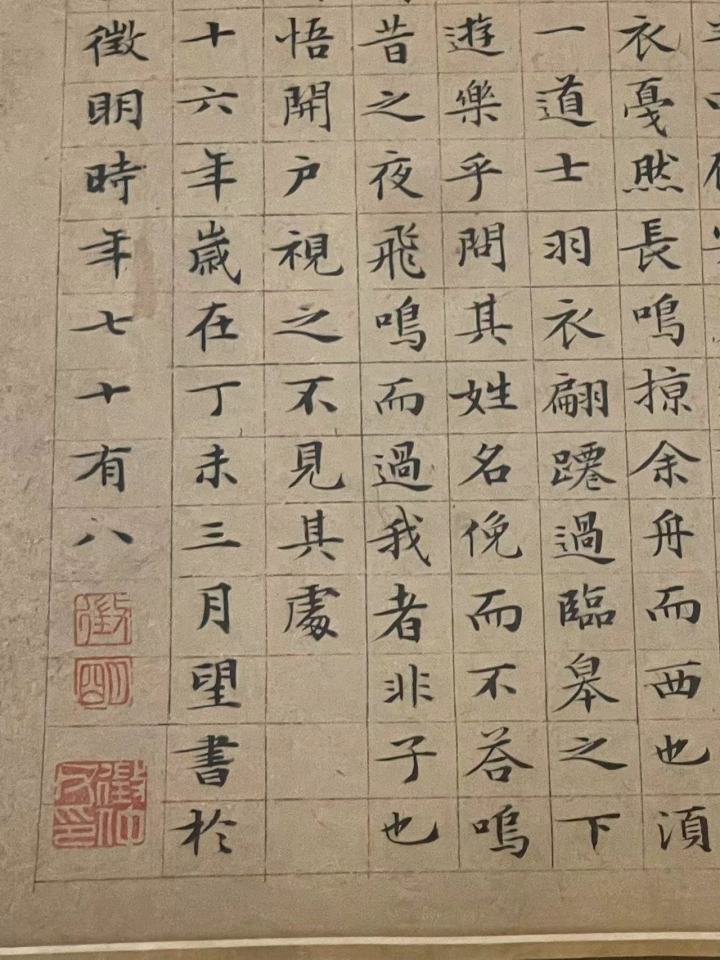 衣戞然長鳴掠余舟而西也湏
一道士羽衣翩躚過臨皋之下
遊樂乎問其姓名俛而不荅嗚
昔之夜飛鳴而過我者非子也
悟開户視之不見其處
十六年歲在丁未三月望書於
徵明時年七十有八
徵
明